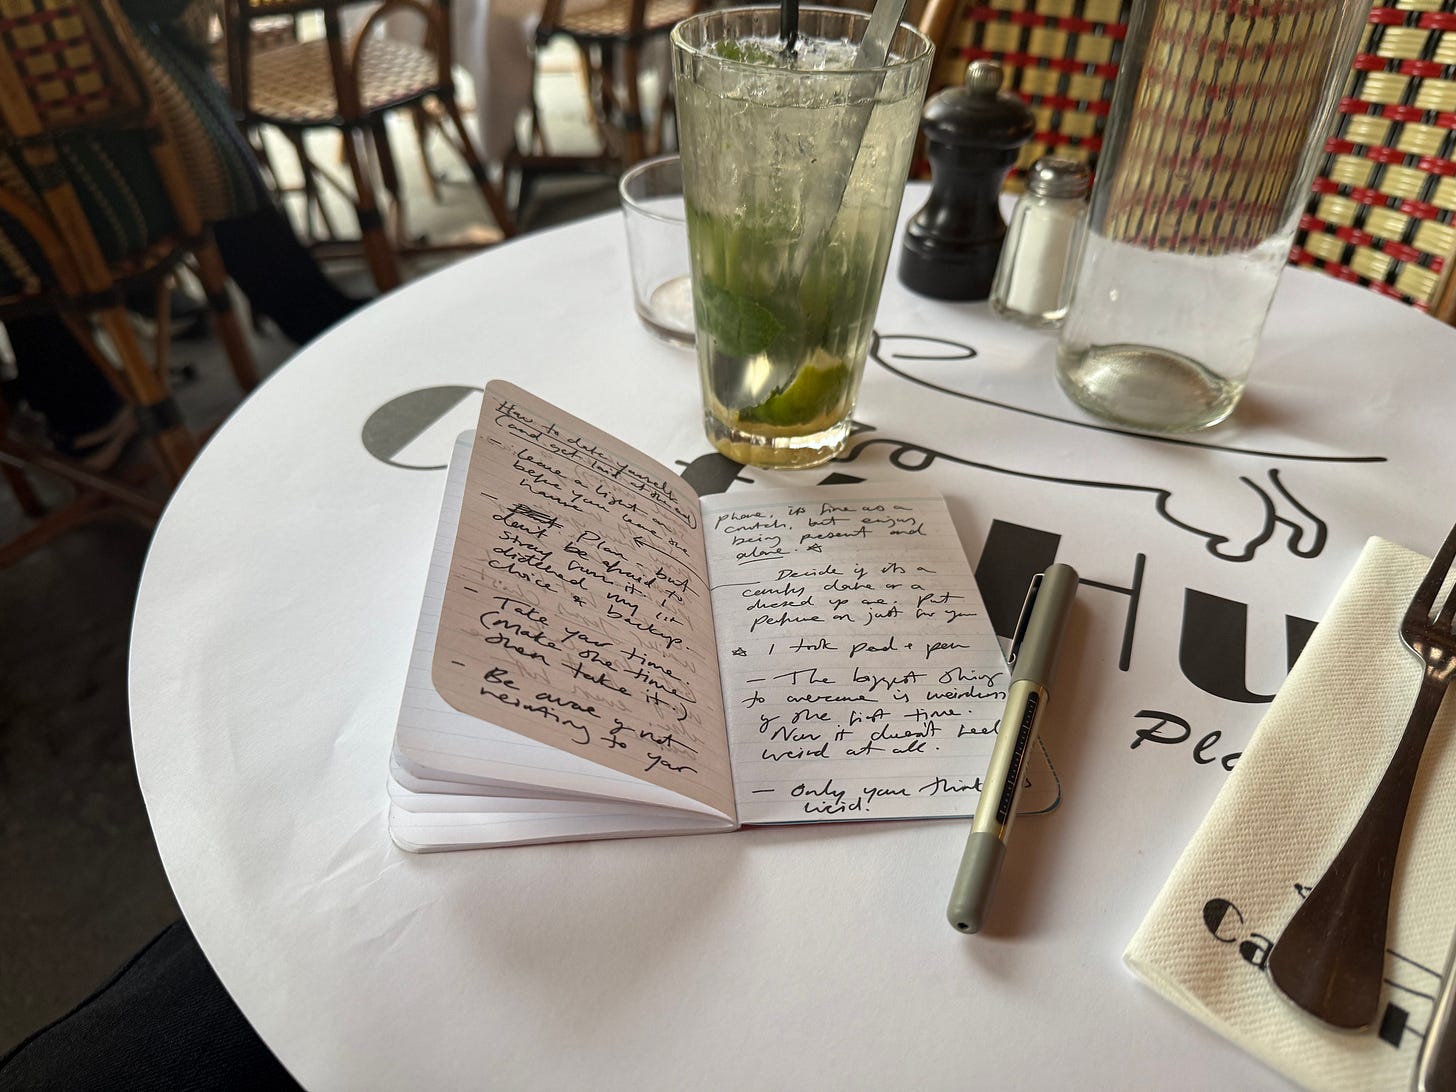 How to date yourself
(and get laid at the end)
- Leave a light on
before you leave the
house
- Plan - but
don't be afraid to
stray from it. I
ditched my 1st
choice & backup.
- Take your time.
(Make the time,
then take it.)
- Be aware of not
resorting to your
phone, it's fine as a
crutch, but enjoy
being present and
alone. ☆
- Decide if it's a
comfy date or a
dressed up one. Put
perfume on just for you
☆ I took pad + pen
- The biggest thing
to overcome is weirdness
of the first time.
Now it doesn't feel
weird at all.
- Only you think
weird.
Hu
Pl
Ca
H